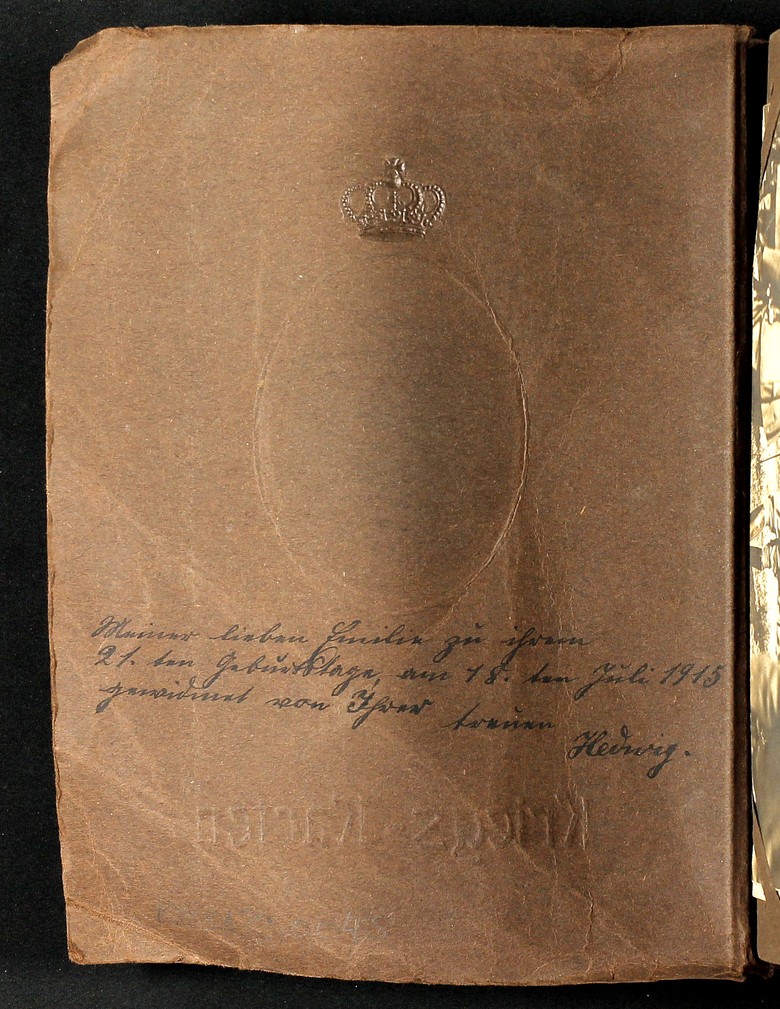 Meiner lieben Emilie zu ihrem
21. ten Geburtstage, am 18. ten Juli 1915
gewidmet von Ihrer treuen
Hedwig.
Kriegs-Karten